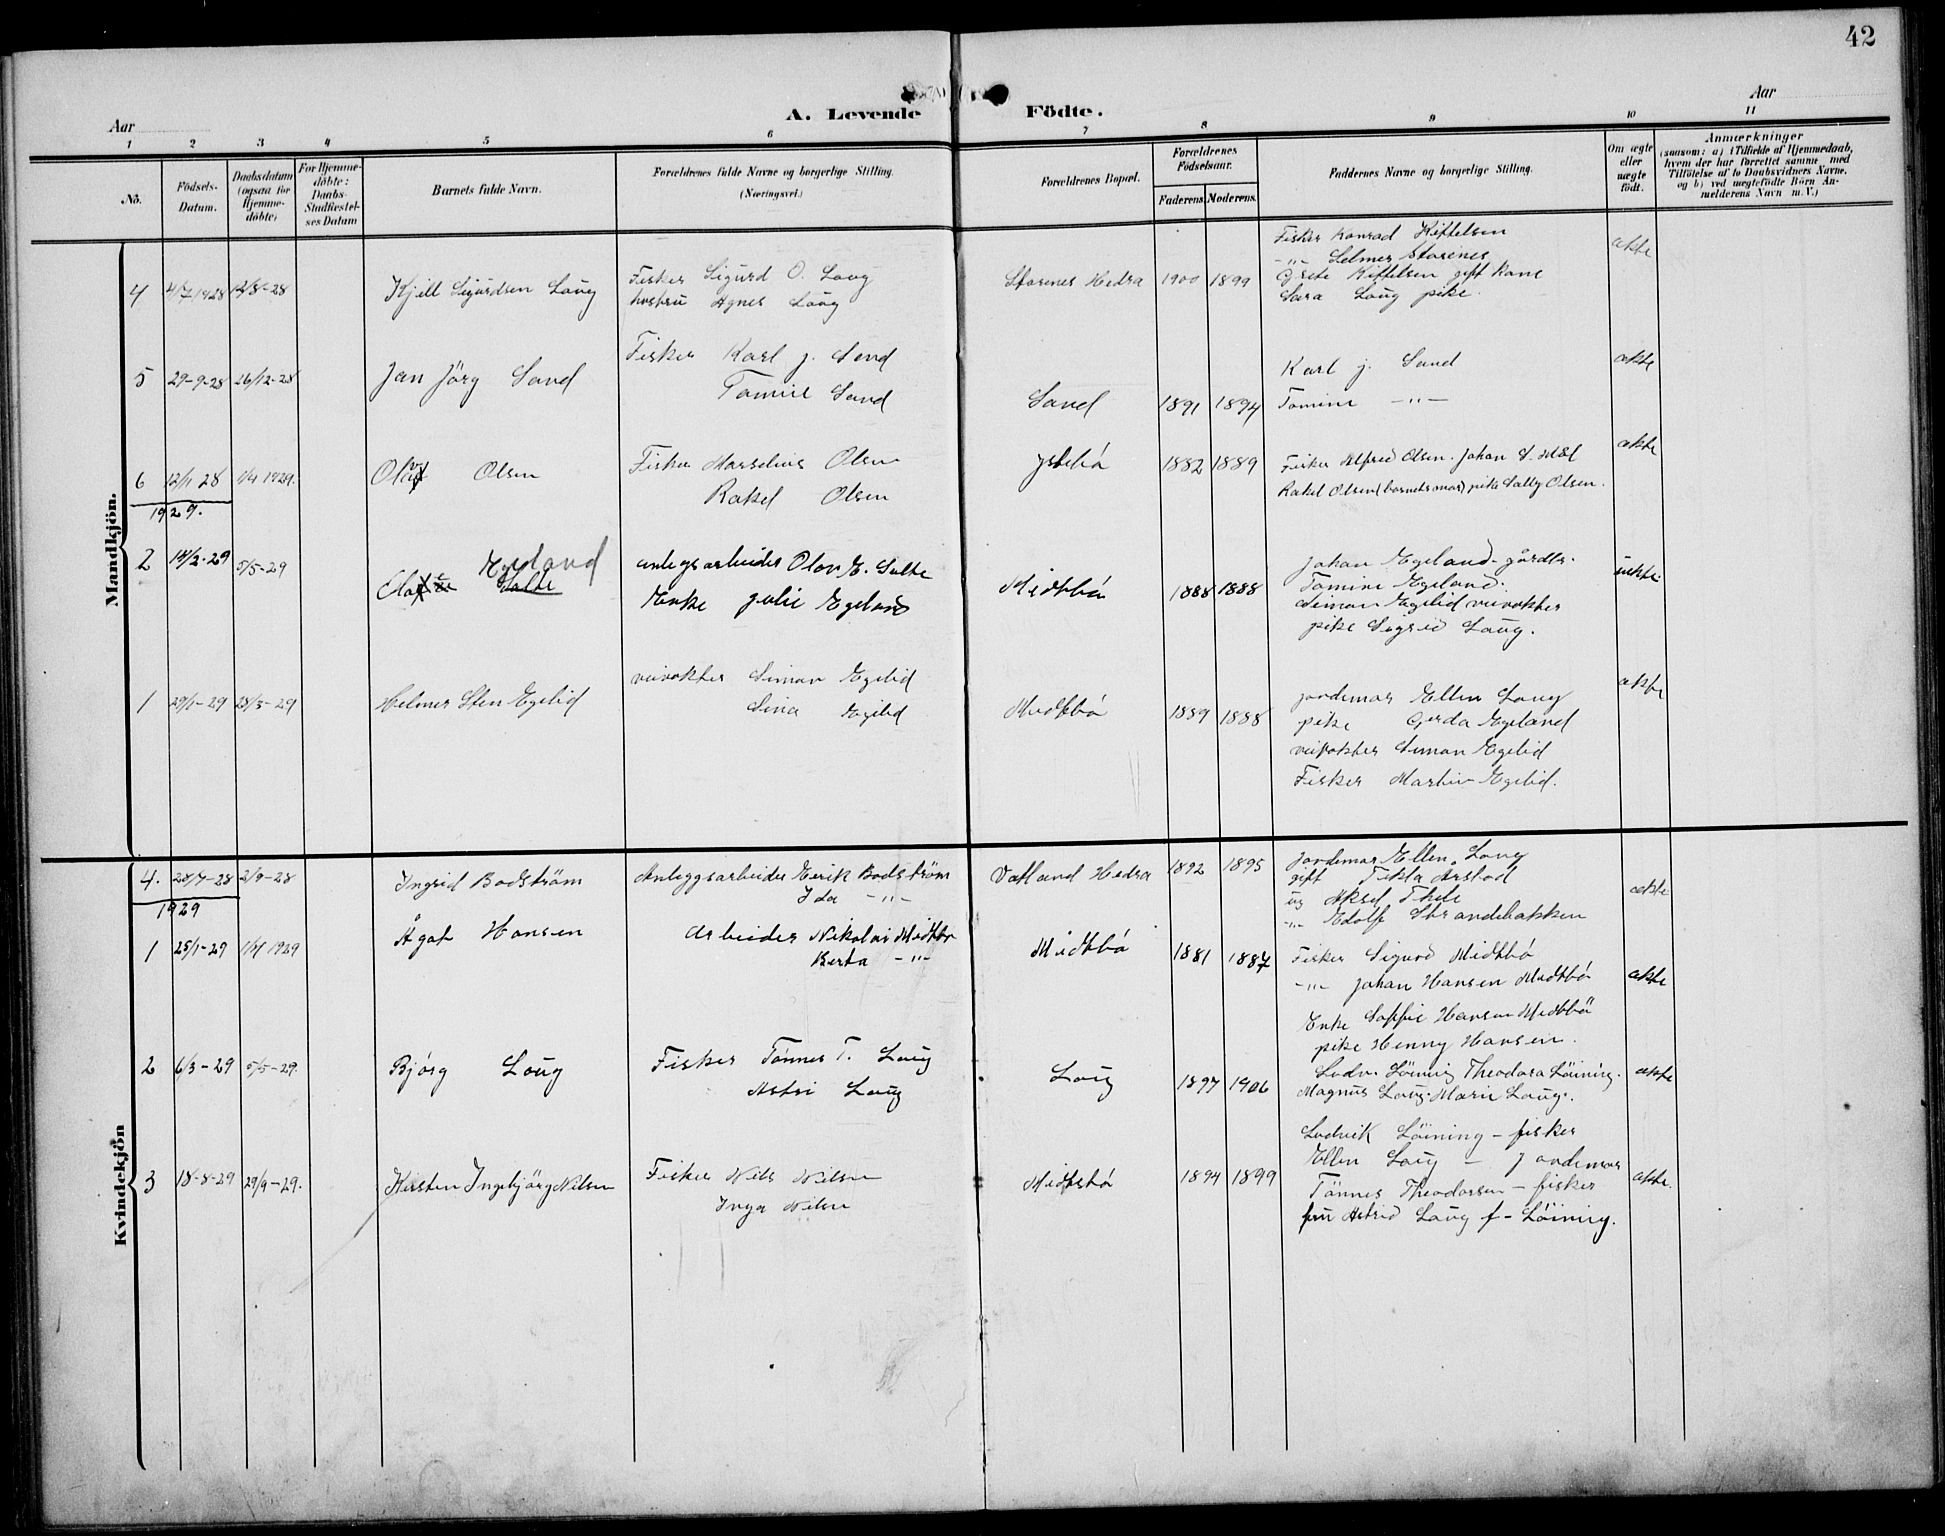 42
A. Levende Födte.
Aar
Aar
1 2 3 4 5 6 7 8 9 10 11
No.
Födsels-Datum.
Daabsdatum (ogsaa for Hjemme-döbte)
For Hjemme-döbte: Daabs Stadfæstel-ses Datum
Barnets fulde Navn.
Forældrenes fulde Navne og borgerlige Stilling. (Næringsvei.)
Forældrenes Bopæl.
Forældrenes Födselsaar.
Faderens Moderens.
Faddernes Navne og borgerlige Stilling.
Om ægte eller uægte födt.
Anmærkninger
(saasom: a) i Tilfælde af Hjemmedaab, hvem der har forrettet samme med Tilföielse af to Daabsvidners Navne, og b) ved uægtefödte Börn An-melderens Navn m. V.)
Mandkjön.
4 4/7 1928 12/8-28 Kjell Sigurdsen Loug
Fisker Sigurd O. Loug
hustru Agnes Loug
Storenes Hedra 1900 1899
Fisker Konrad Kittelsen
-"- Selmer Storenes
Grete Kittelsen gift Kone
Sara Loug pike.
ekte
5 29-9-28 26/12-28 Jan Jörg Sand
Fisker Karl J. Sand
Tomine Sand
Sand 1891 1894
Karl J. Sand
Tomine -"-
ekte
6 12/11 28 1/4 1929. Olav Olsen
Fisker Marselius Olsen
Rakel Olsen
Ystebö 1882 1889
Fisker Alfred Olsen. Johan
Rakel Olsen (barnets mor) pike Sally Olsen.
ekte
1929.
2 14/2-29 5/5-29 Egeland
Salte
anlegsarbeider Olav E. Salte
Enke Julie Egeland
Midtbö 1888 1888
Johan Egeland gårdbr.
Tomine Egeland.
Simon Egelid veivokter
pike Sigrid Loug.
uekte
1 29/1-29 28/3-29 Helmer Sten Egelid
veivokter Simon Egelid
Sina Egelid
Midtbö 1889 1888
jordemor Ellen Loug
pike Gerda Egeland
veivokter Simon Egelid
Fisker Martin Egelid.
ekte
Kvindekjön
4. 28/7-28 2/9-28 Ingrid Bodström
Anleggsarbeider Eerik Bodström
Ida -"-
Vatland Hedra 1892 1895
Jordemor Ellen Loug
gift Tekla Arstad
ug Aksel Thele
-"- Edolf Strandebakken
ekte
1929
1 25/1-29 1/4 1929 Ågot Hansen
arbeider Nikolai Midtbö
Berta -"-
Midtbö 1881 1887
Fisker Sigurd Midtbö
-"- Johan Hansen Midtbö
Enke Soffie Hansen Midtbö
pike Henny Hansen.
ekte
2 6/3-29 5/5-29. Bjórg Loug
Fisker Tönnes T. Loug
Astri Loug
Loug 1897 1906
Ludv. Löining Theodora Löining.
Magnus Loug. Marie Loug.
ekte
3 18-8-29 29/9-29. Kirsten Ingebjörg Nilsen
Fisker Nils Nilsen
Inga Nilsen
Midtbö 1894 1899
Ludvik Löining - fisker
Ellen Loug - Jordemor
Tönnes Theodorsen - fisker
fru Astrid Loug f- Löining.
ekte.